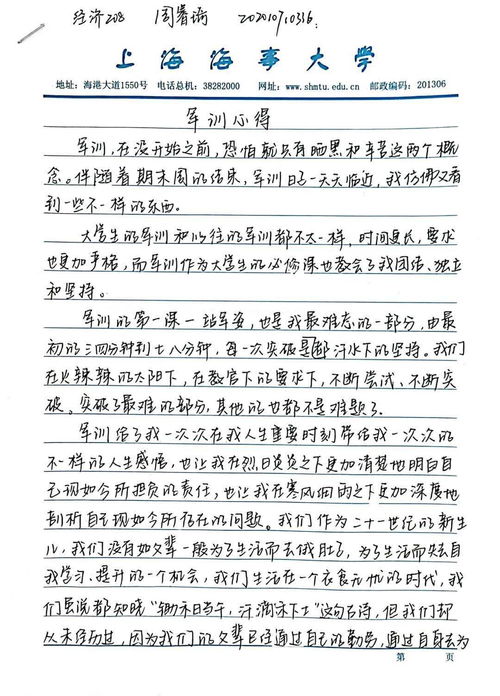 经济208 周睿涵 202010710336
上海海事大学
地址：海港大道1550号 电话总机：38282000 网址：www.shmtu.edu.cn 邮政编码：201306
军训心得
军训，在没开始之前，恐怕就只有晒黑和辛苦这两个概
念。伴随着期末周的结束，军训日子一天天临近，我仿佛又看
到一些不一样的东西。
大学生的军训和以往的军训都不太一样，时间更长，要求
也更加严格，而军训作为大学生的必修课也教会了我团结、独立
和坚持。
军训的第一课—站军姿，也是我最难忘的一部分，由最
初的三四分钟到七八分钟，每一次突破是都汗水下的坚持。我们
在火辣辣的太阳下，在教官下的要求下，不断尝试、不断突
破。突破了最难的部分，其他的也都不是难题了。
军训给了我一次次在我人生重要时刻带给我一次次的
不一样的人生感悟，也让我在烈日炎炎之下更加清楚地明白自
己现如今所担负的责任，也让我在寒风细雨之下更加深度地
剖析自己现如今所存在的问题。我们作为二十一世纪的新生
儿，我们没有如父辈一般为了生活而去饿肚子，为了生活而失去自
我学习、提升的一个机会，我们生活在一个衣食无忧的时代，我
们虽说都知晓“锄禾日当午，汗滴禾下土”这句古诗，但我们却
从未经历过，因为我们的父辈已经通过自己的勤劳，通过自身去为
第 页